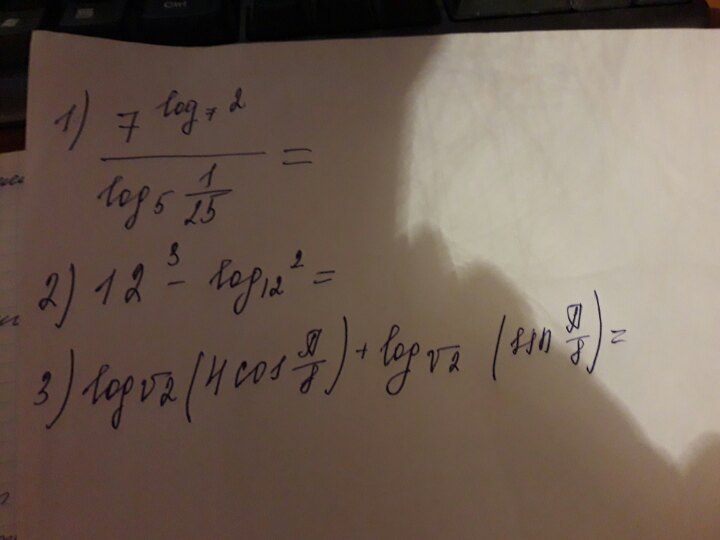 1) 7^{log_7 2} / log_5 1/25 =
2) 12^3 - log_{12} 2 =
3) log_{√2} (4cos π/8) + log_{√2} (sin π/8) =
Ctrl